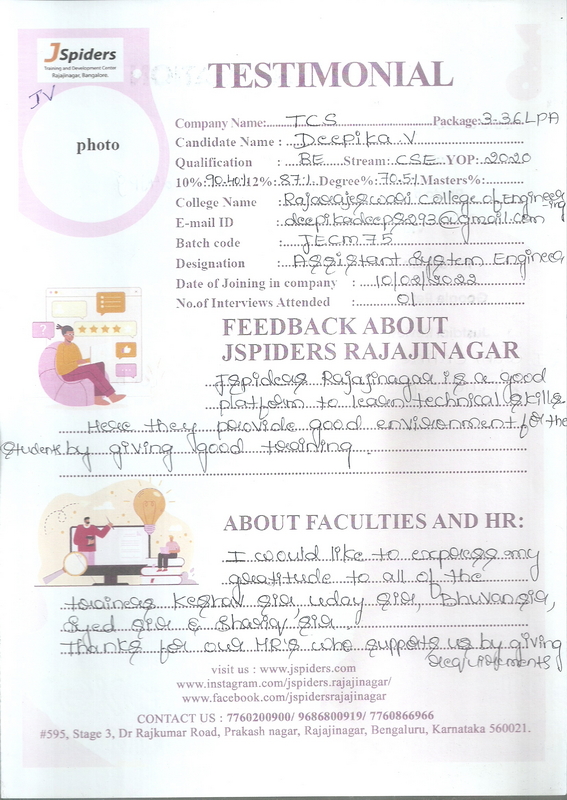 JSpiders
Training and Development Centre
Rajajinagar, Bangalore.
JV
TESTIMONIAL
photo
Company Name: TCS Package: 3.36LPA
Candidate Name : Deepika V
Qualification : BE Stream: CSE YOP: 2020
10%: 90.40% 12%: 87% Degree%: 70.5% Masters%:
College Name : Rajarajeswari College of Engineer
-ing
E-mail ID : deepikadeep8293@gmail.com
Batch code : JECM75
Designation : Assistant System Engineer
Date of Joining in company : 10/02/2022
No.of Interviews Attended : 01
FEEDBACK ABOUT
JSPIDERS RAJAJINAGAR
Jspiders Rajajinagar is a good
platform to learn technical skills
Here they provide good environment for the
students by giving good training.
ABOUT FACULTIES AND HR:
I would like to express my
gratitude to all of the
trainers Keshav sir, uday sir, Bhuvan sir,
Syed sir & Shariq sir.
Thanks for our HR's who supports us by giving
requirements
visit us : www.jspiders.com
www.instagram.com/jspiders.rajajinagar/
www.facebook.com/jspidersrajajinagar
CONTACT US : 7760200900/ 9686800919/ 7760866966
#595, Stage 3, Dr Rajkumar Road, Prakash nagar, Rajajinagar, Bengaluru, Karnataka 560021.